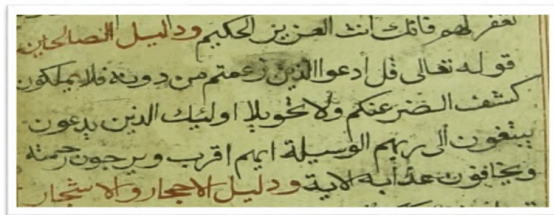 تغفر لهم فانك انت العزيز الحكيم ودليل الصالحين
قوله تعالى قل ادعوا الذين زعمتم من دونه فلا يملكون
كشف الضر عنكم ولا تحويلا اولئيك الذين يدعون
يبتغون الى ربهم الوسيلة ايهم اقرب ويرجون رحمته
ويخافون عذابه الاية ودليل الاحجار والاشجار